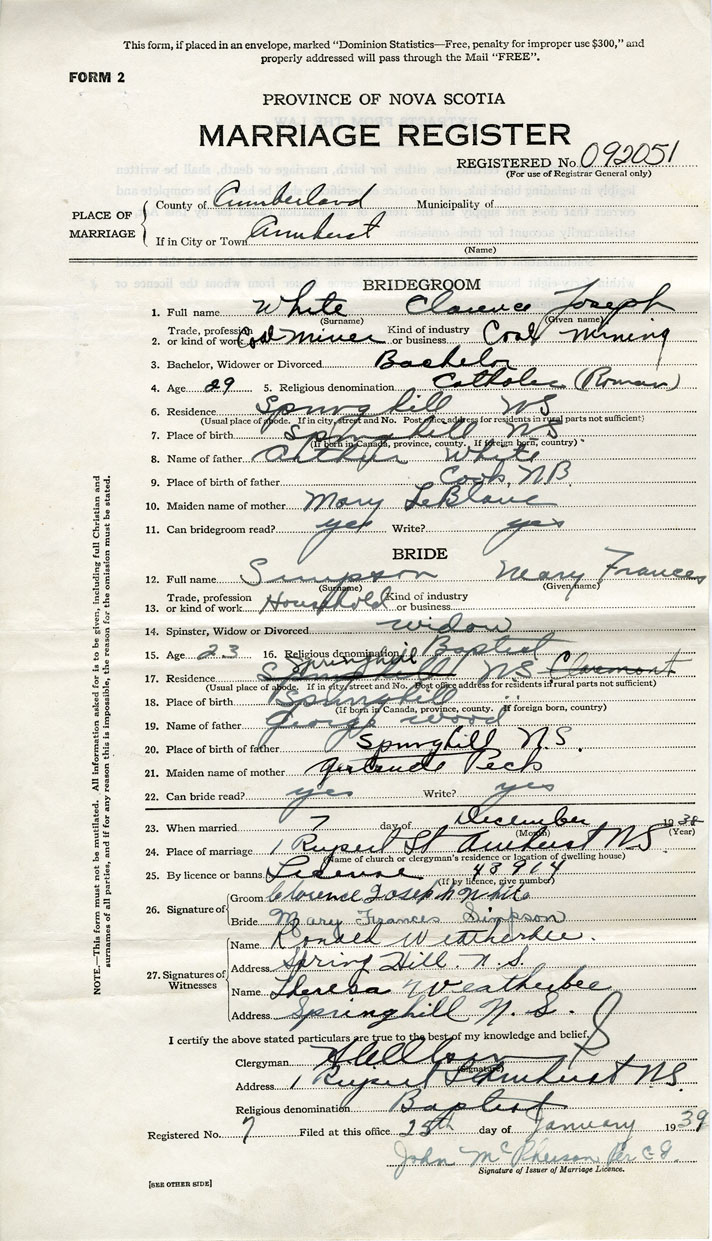 This form, if placed in an envelope, marked “Dominion Statistics—Free, penalty for improper use $300,” and
properly addressed will pass through the Mail “FREE”.
FORM 2
PROVINCE OF NOVA SCOTIA
MARRIAGE REGISTER
REGISTERED No. 092051
(For use of Registrar General only)
PLACE OF MARRIAGE
County of Cumberland Municipality of
If in City or Town Amherst
(Name)
BRIDEGROOM
1. Full name White Clarence Joseph
(Surname) (Given name)
2. Trade, profession or kind of work Coal Miner Kind of industry or business Coal Mining
3. Bachelor, Widower or Divorced Bachelor
4. Age 29 5. Religious denomination Catholic (Roman)
6. Residence Springhill NS
(Usual place of abode. If in city, street and No. Post office address for residents in rural parts not sufficient)
7. Place of birth Springhill NS
(If born in Canada, province, county. If foreign born, country)
8. Name of father Arthur White
9. Place of birth of father Cook, NB
10. Maiden name of mother Mary LeBlanc
11. Can bridegroom read? yes Write? yes
BRIDE
12. Full name Simpson Mary Frances
(Surname) (Given name)
13. Trade, profession or kind of work Household Kind of industry or business
14. Spinster, Widow or Divorced widow
15. Age 23 16. Religious denomination Baptist
Springhill
17. Residence Springhill NS Claremont
(Usual place of abode. If in city, street and No. Post office address for residents in rural parts not sufficient)
18. Place of birth Springhill
(If born in Canada, province, county. If foreign born, country)
19. Name of father George Wood
20. Place of birth of father Springhill N.S.
21. Maiden name of mother Gertrude Peck
22. Can bride read? yes Write? yes
23. When married 7 day of December 1938
(Month) (Year)
24. Place of marriage 1 Rupert St Amherst NS
(Name of church or clergyman's residence or location of dwelling house)
25. By licence or banns License 48914
(If by licence, give number)
26. Signature of
Groom Clarence Joseph White
Bride Mary Frances Simpson
27. Signatures of Witnesses
Name Ronald Weatherbee.
Address Spring Hill. N.S.
Name Theresa Weatherbee
Address Springhill N.S.
I certify the above stated particulars are true to the best of my knowledge and belief.
Clergyman
(Signature)
Address 1 Rupert St Amherst N.S.
Religious denomination Baptist
Registered No. 7 Filed at this office 25th day of January 1939
John McPherson Per C.G.
Signature of Issuer of Marriage Licence.
[SEE OTHER SIDE]
NOTE.—This form must not be mutilated. All information asked for is to be given, including full Christian and
surnames of all parties, and if for any reason this is impossible, the reason for the omission must be stated.